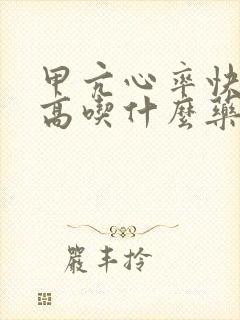 甲亢心率快
高喫什麼藥
嚴丰拎